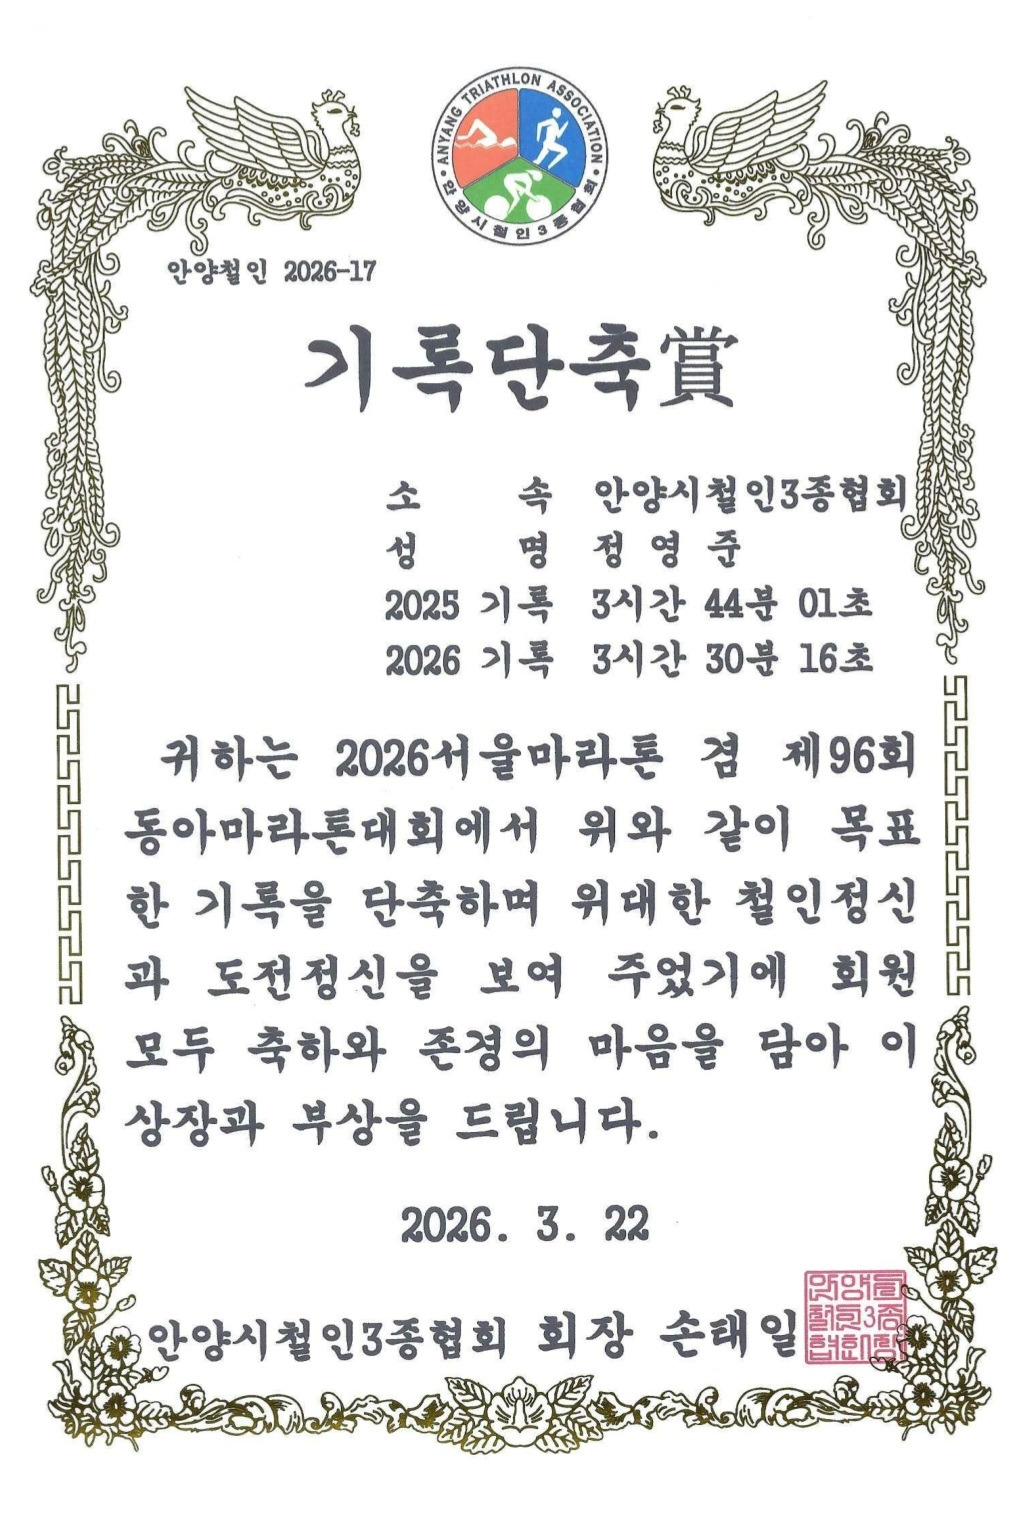 ANYANG TRIATHLON ASSOCIATION
안양시철인3종협회
안양철인 2026-17
기록단축賞
소 속 안양시철인3종협회
성 명 정 영 준
2025 기록 3시간 44분 01초
2026 기록 3시간 30분 16초
귀하는 2026서울마라톤 겸 제96회
동아마라톤대회에서 위와 같이 목표
한 기록을 단축하며 위대한 철인정신
과 도전정신을 보여 주었기에 회원
모두 축하와 존경의 마음을 담아 이
상장과 부상을 드립니다.
2026. 3. 22
안양시철인3종협회 회장 손태일